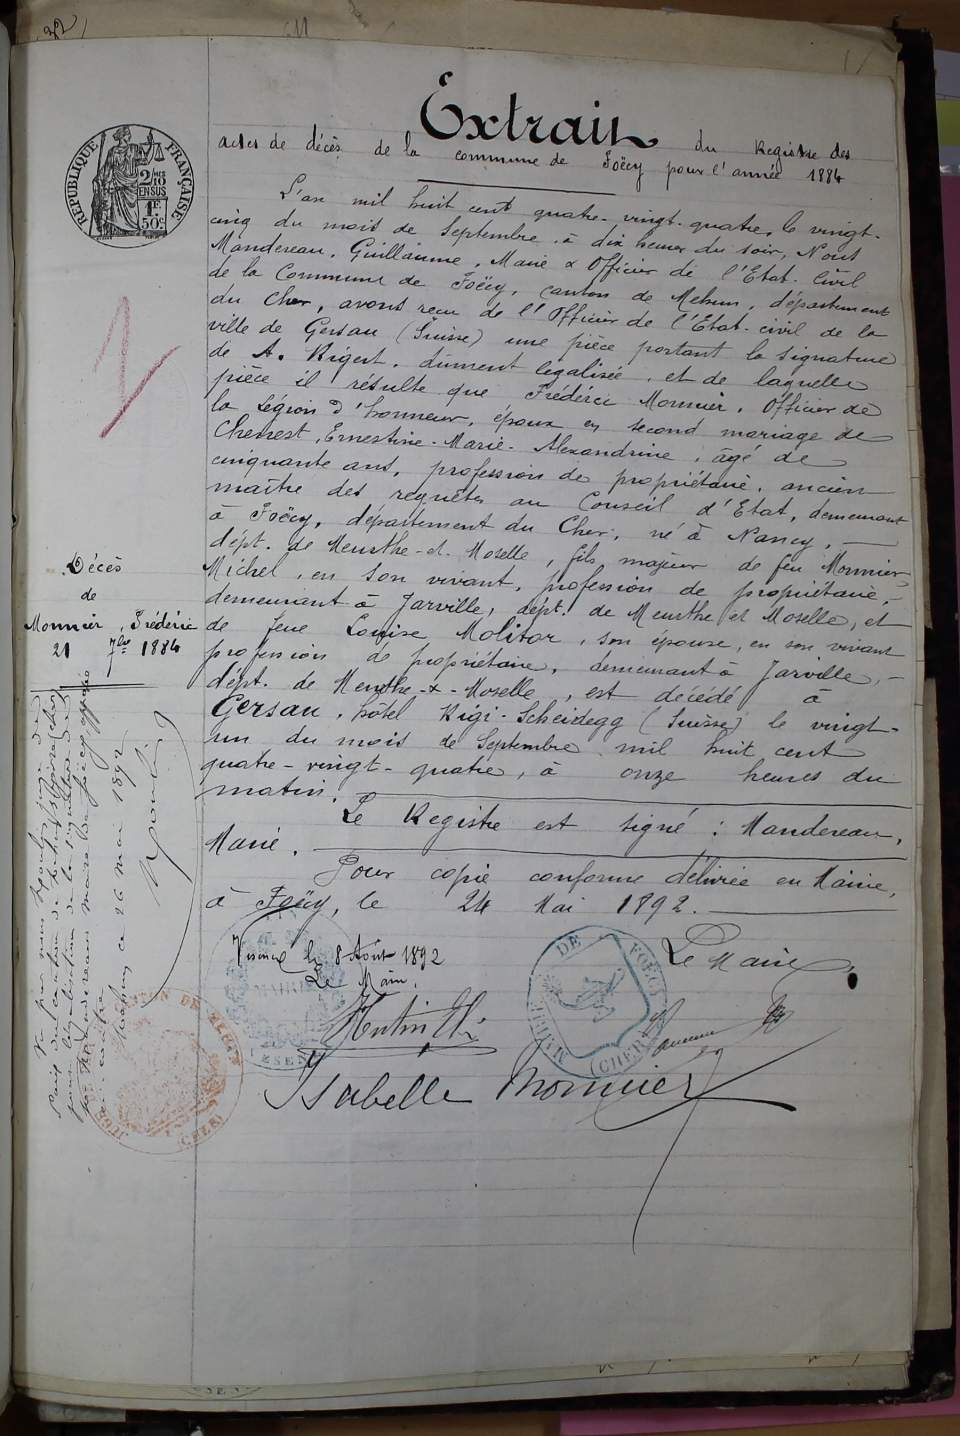 32
Extrait du Registre des
actes de décès de la commune de Foëcy pour l'année 1884
RÉPUBLIQUE FRANÇAISE
2/10 EN SUS
1F. 50c.
L'an mil huit cent quatre-vingt-quatre, le vingt-
cinq du mois de Septembre, à dix heures du soir, Nous
Mandereau, Guillaume, Maire & Officier de l'Etat-Civil
de la Commune de Foëcy, canton de Mehun, département
du Cher, avons reçu de l'Officier de l'Etat-civil de la
ville de Gersau (Suisse) une pièce portant la signature
de A. Rigert, dûment légalisée, et de laquelle
pièce il résulte que Frédéric Monnier, Officier de
la Légion d'honneur, époux en second mariage de
Chenest, Ernestine-Marie-Alexandrine, âgé de
cinquante ans, profession de propriétaire, ancien
maître des requêtes au Conseil d'Etat, demeurant
à Foëcy, département du Cher, né à Nancy,
dépt. de Meurthe-et-Moselle, fils majeur de feu Monnier
Michel, en son vivant, profession de propriétaire,
demeurant à Jarville, dépt. de Meurthe et Moselle, et
de feue Louise Molitor, son épouse, en son vivant
profession de propriétaire, demeurant à Jarville,
dépt. de Meurthe-&-Moselle, est décédé à
Gersau, hôtel Rigi-Scheidegg (Suisse) le vingt-
un du mois de Septembre mil huit cent
quatre-vingt-quatre, à onze heures du
matin.
Le Registre est signé : Mandereau,
Maire.
Pour copie conforme délivrée en Mairie,
à Foëcy, le 24 Mai 1892.
Le Maire,
Décès
de
Monnier, Frédéric
21 7bre 1884
Vu par nous
Paix du canton de
pour légalisation de la signature de
Mandereau maire de Foëcy apposée
ci-contre
Mehun ce 26 mai 1892
le 8 Août 1892
Le Maire.
MAIRIE
MAIRIE DE FOËCY
(CHER)
CANTON DE MEHUN
(CHER)
Isabelle Monnier